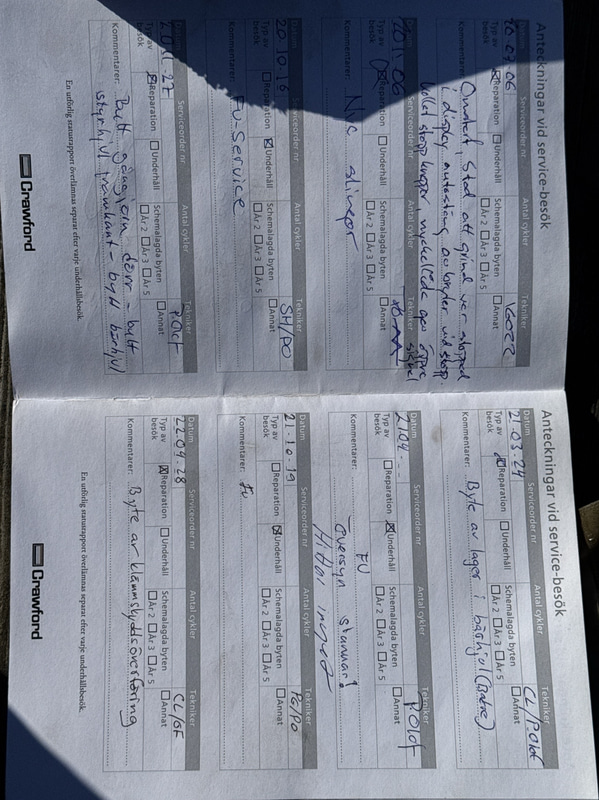 Anteckningar vid service-besök
Datum Serviceorder nr Antal cykler Tekniker
20.07.06 16022
Typ av besök Reparation Underhåll Schemalagda byten År 2 År 3 År 5 Annat
Kommentarer: Omstart, Stod att grind var stoppad
i display
vid stopp
Datum Serviceorder nr Antal cykler Tekniker
Typ av besök Reparation Underhåll Schemalagda byten År 2 År 3 År 5 Annat
Kommentarer: Nya slingor
Datum Serviceorder nr Antal cykler Tekniker
20.10.16 SH/PO
Typ av besök Reparation Underhåll Schemalagda byten År 2 År 3 År 5 Annat
Kommentarer: FU-Service
Datum Serviceorder nr Antal cykler Tekniker
P.Olof
Typ av besök Reparation Underhåll Schemalagda byten År 2 År 3 År 5 Annat
Kommentarer: Bytt gångjärn dörr - bytt
styrhjul framkant - bytt bärhjul
En utförlig statusrapport överlämnas separat efter varje underhållsbesök.
Crawford
Anteckningar vid service-besök
Datum Serviceorder nr Antal cykler Tekniker
21.03.24 CL/P.Olof
Typ av besök Reparation Underhåll Schemalagda byten År 2 År 3 År 5 Annat
Kommentarer: Byte av lager i bärhjul (Bakre)
Datum Serviceorder nr Antal cykler Tekniker
2104 - - P.Olof
Typ av besök Reparation Underhåll Schemalagda byten År 2 År 3 År 5 Annat
Kommentarer: FU
Översyn stannat
Hittar inget
Datum Serviceorder nr Antal cykler Tekniker
21-10-19 PG/PO
Typ av besök Reparation Underhåll Schemalagda byten År 2 År 3 År 5 Annat
Kommentarer: FU
Datum Serviceorder nr Antal cykler Tekniker
22.04.28 CL/GF
Typ av besök Reparation Underhåll Schemalagda byten År 2 År 3 År 5 Annat
Kommentarer: Byte av klämskyddsöverföring
En utförlig statusrapport överlämnas separat efter varje underhållsbesök.
Crawford